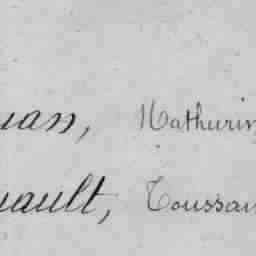 uan, Mathurin
uault, Toussain